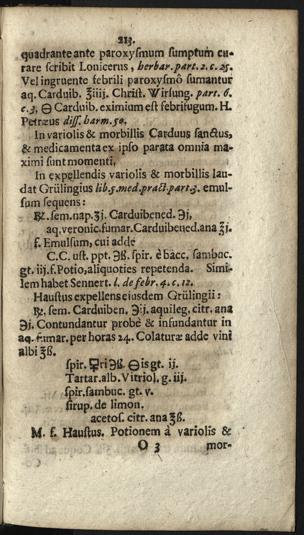 213.
quadrante ante paroxysmum sumptum cu-
rare scribit Lonicerus, herbar. part. 2. c. 25.
Vel ingruente febrili paroxysmô sumantur
aq. Carduib. ℥iiij. Christ. Wirsung. part. 6.
c. 3. ⊖ Carduib. eximium est febrifugum. H.
Petræus diss. harm. 50.
In variolis & morbillis Carduus sanctus,
& medicamenta ex ipso parata omnia ma-
ximi sunt momenti,
In expellendis variolis & morbillis lau-
dat Grülingius lib. 5. med. pract. part. 3. emul-
sum sequens:
℞. sem. nap. ʒj. Carduibened. ℈j,
aq. veronic. fumar. Carduibened. ana ℥j.
f. Emulsum, cui adde
C.C. ust. ppt. ℈ß. spir. è bacc. sambuc.
gt. iij. f. Potio, aliquoties repetenda. Simi-
lem habet Sennert. l. de febr. 4. c. 12.
Haustus expellens eiusdem Grülingii:
℞. sem. Carduiben. ℈ij. aquileg. citr. ana
℈j. Contundantur probè & infundantur in
aq. fumar. per horas 24. Colaturæ adde vini
albi ℥ß.
spir. 🜍ri ℈ß. ⊖is gt. ij.
Tartar. alb. Vitriol. g. iij.
spir. sambuc. gt. v.
sirup. de limon.
acetos. citr. ana ʒß.
M. f. Haustus. Potionem à variolis &
O 3 mor-